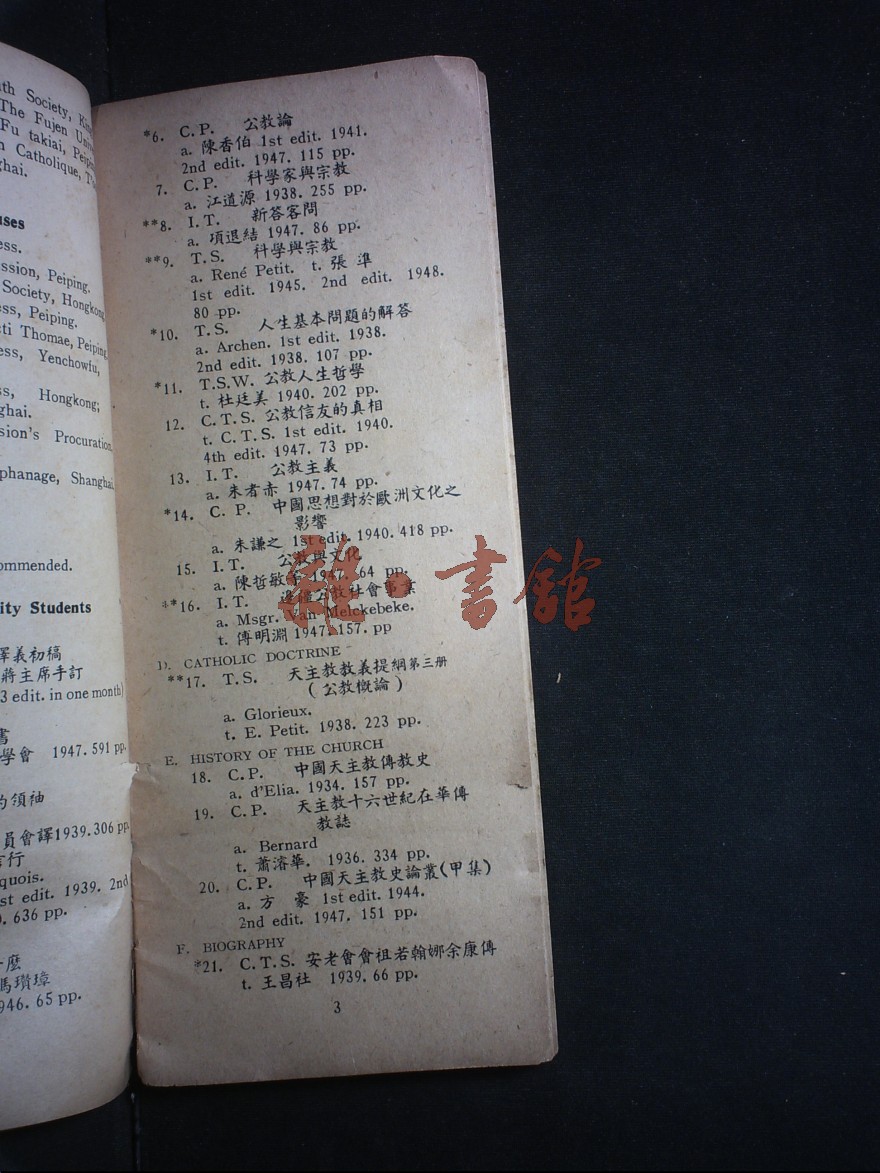 uth Society,
The Fujen
Fu takiai, Peiping
Catholique,
ghai.
uses
ess.
ession, Peiping.
Society, Hongkong.
ess, Peiping.
cti Thomae, Peiping.
ess, Yenchowfu,
ess, Hongkong;
ghai.
sion's Procuration,
phanage, Shanghai.
ommended.
ity Students
譯義初稿
蔣主席手訂
3 edit. in one month)
書
學會 1947. 591 pp.
的領袖
員會譯1939. 306 pp.
言行
quois.
st edit. 1939. 2nd
636 pp.
什麼
馮瓚璋
946. 65 pp.
*6. C.P. 公教論
a. 陳香伯 1st edit. 1941.
2nd edit. 1947. 115 pp.
7. C.P. 科學家與宗教
a. 江道源 1938. 255 pp.
**8. I.T. 新答客問
a. 項退結 1947. 86 pp.
**9. T.S. 科學與宗教
a. René Petit. t. 張準
1st edit. 1945. 2nd edit. 1948.
80 pp.
*10. T.S. 人生基本問題的解答
a. Archen. 1st edit. 1938.
2nd edit. 1938. 107 pp.
*11. T.S.W. 公教人生哲學
t. 杜廷美 1940. 202 pp.
12. C.T.S. 公教信友的真相
t. C.T.S. 1st edit. 1940.
4th edit. 1947. 73 pp.
13. I.T. 公教主義
a. 朱者赤 1947. 74 pp.
*14. C.P. 中國思想對於歐洲文化之
影響
a. 朱謙之 1st edit. 1940. 418 pp.
15. I.T. 公教與文化
a. 陳哲敏 1947. 64 pp.
**16. I.T. 邊疆公教社會事業
a. Msgr. Van Melckebeke.
t. 傅明淵 1947. 157. pp
D. CATHOLIC DOCTRINE
**17. T.S. 天主教教義提綱第三册
(公教概論)
a. Glorieux.
t. E. Petit. 1938. 223 pp.
E. HISTORY OF THE CHURCH
18. C.P. 中國天主教傳教史
a. d'Elia. 1934. 157 pp.
19. C.P. 天主教十六世紀在華傳
教誌
a. Bernard
t. 蕭濬華. 1936. 334 pp.
20. C.P. 中國天主教史論叢(甲集)
a. 方豪 1st edit. 1944.
2nd edit. 1947. 151 pp.
F. BIOGRAPHY
*21. C.T.S. 安老會會祖若翰娜余康傳
t. 王昌社 1939. 66 pp.
3
雜·書館